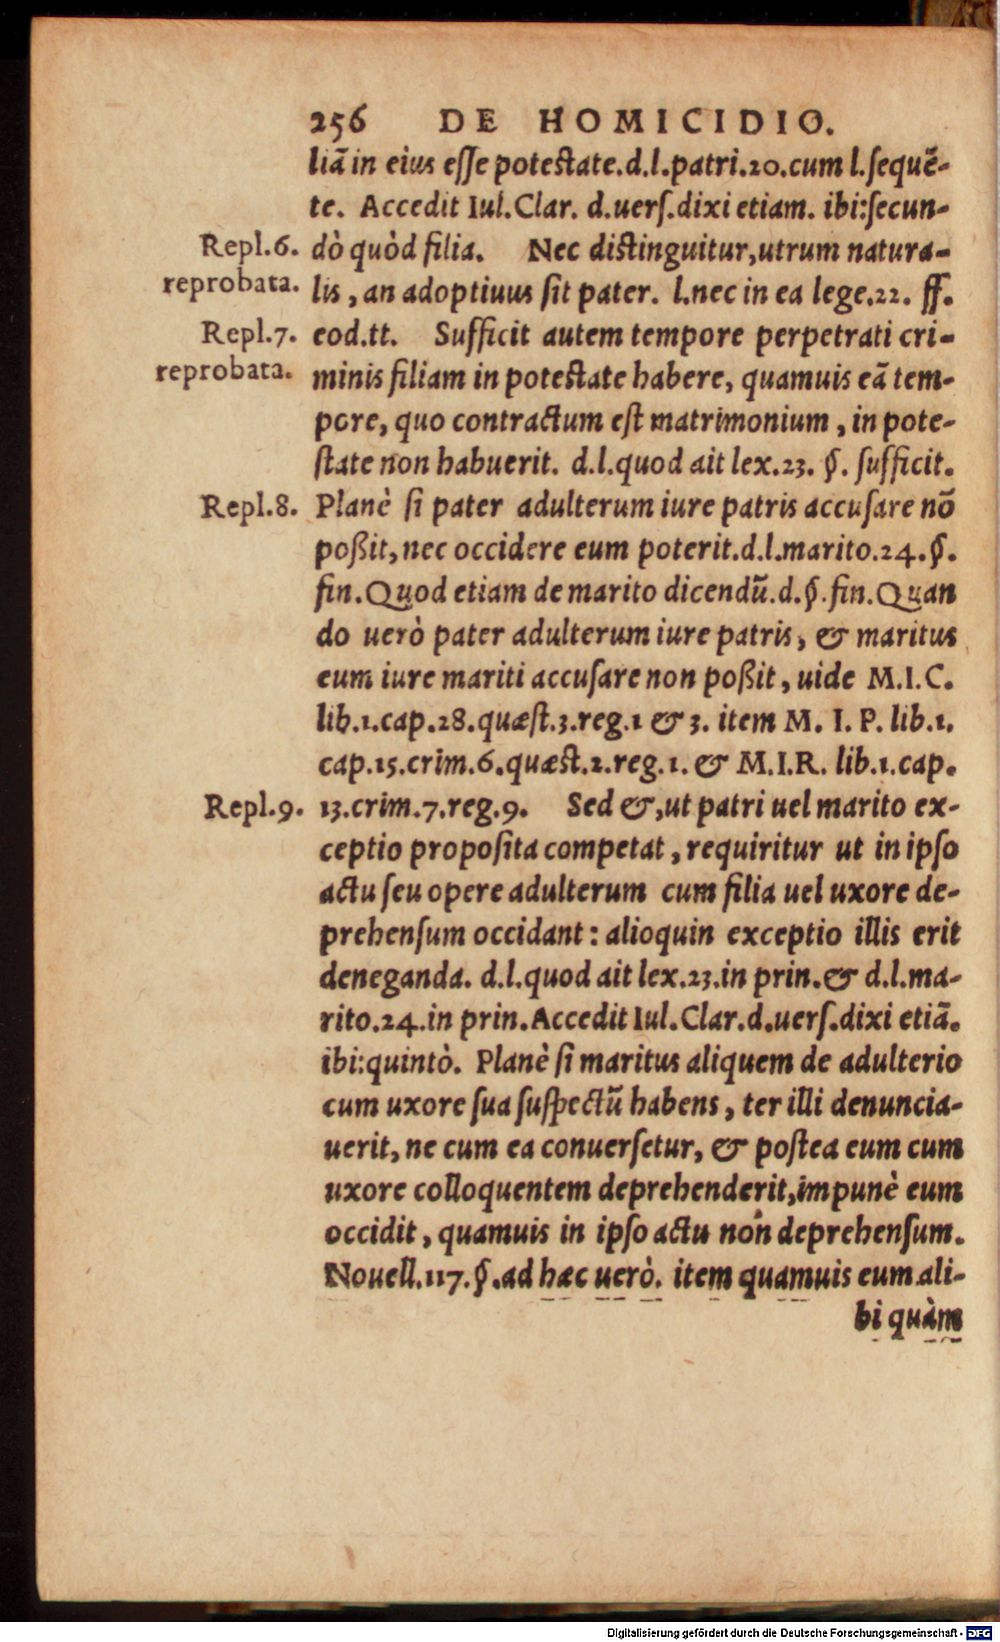 256 DE HOMICIDIO.
liã in eius eſſe poteſtate.d.l.patri.20.cum l.ſequẽ-
te. Accedit Iul.Clar. d.uerſ.dixi etiam. ibi:ſecun-
Repl.6. dò quòd filia. Nec diſtinguitur,utrum natura-
reprobata. lis, an adoptiuus ſit pater. l.nec in ea lege.22. ff.
Repl.7. eod.tt. Sufficit autem tempore perpetrati cri-
reprobata. minis filiam in poteſtate habere, quamuis eã tem-
pore, quo contractum eſt matrimonium, in pote-
ſtate non habuerit. d.l.quod ait lex.23. §. ſufficit.
Repl.8. Planè ſi pater adulterum iure patris accuſare nõ
poßit, nec occidere eum poterit.d.l.marito.24.§.
fin.Quod etiam de marito dicendũ.d.§.fin.Quan
do uerò pater adulterum iure patris, & maritus
eum iure mariti accuſare non poßit, uide M.I.C.
lib.1.cap.28.quæſt.3.reg.1 & 3. item M. I. P. lib.1.
cap.15.crim.6.quæſt.2.reg.1. & M.I.R. lib.1.cap.
Repl.9. 13.crim.7.reg.9. Sed &,ut patri uel marito ex-
ceptio propoſita competat, requiritur ut in ipſo
actu ſeu opere adulterum cum filia uel uxore de-
prehenſum occidant: alioquin exceptio illis erit
deneganda. d.l.quod ait lex.23.in prin.& d.l.ma-
rito.24.in prin.Accedit Iul.Clar.d.uerſ.dixi etiã.
ibi:quintò. Planè ſi maritus aliquem de adulterio
cum uxore ſua ſuſpectũ habens, ter illi denuncia-
uerit, ne cum ea conuerſetur, & poſtea eum cum
uxore colloquentem deprehenderit,impunè eum
occidit, quamuis in ipſo actu non deprehenſum.
Nouell.117.§.ad hæc uerò. item quamuis eum ali-
bi quàm
Digitalisierung gefördert durch die Deutsche Forschungsgemeinschaft - DFG